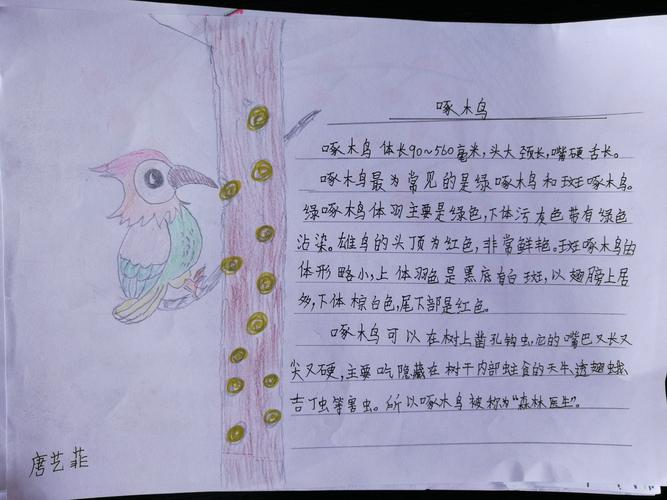 啄木鸟
啄木鸟体长90~560毫米,头大颈长,嘴硬舌长。
啄木鸟最为常见的是绿啄木鸟和斑啄木鸟。
绿啄木鸟体羽主要是绿色,下体污灰色带有绿色
沾染。雄鸟的头顶为红色,非常鲜艳。斑啄木鸟的
体形略小,上体羽色是黑底有白斑,以翅膀上居
多,下体棕白色,尾下部是红色。
啄木鸟可以在树上凿孔钩虫,它的嘴巴又长又
尖又硬,主要吃隐藏在树干内部蛀食的天牛、透翅蛾、
吉丁虫等害虫。所以啄木鸟被称为“森林医生”。
唐艺菲